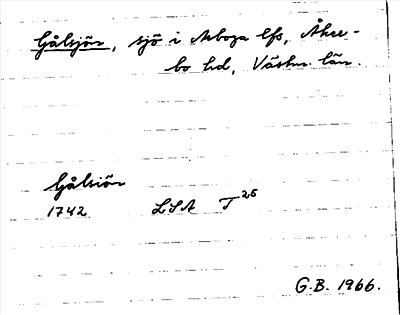 Gålsjön, sjö i Arboga lfs, Åker-
bo hd, Västm. län.
Gålsiön
1742 LSA T 25
G.B. 1966.